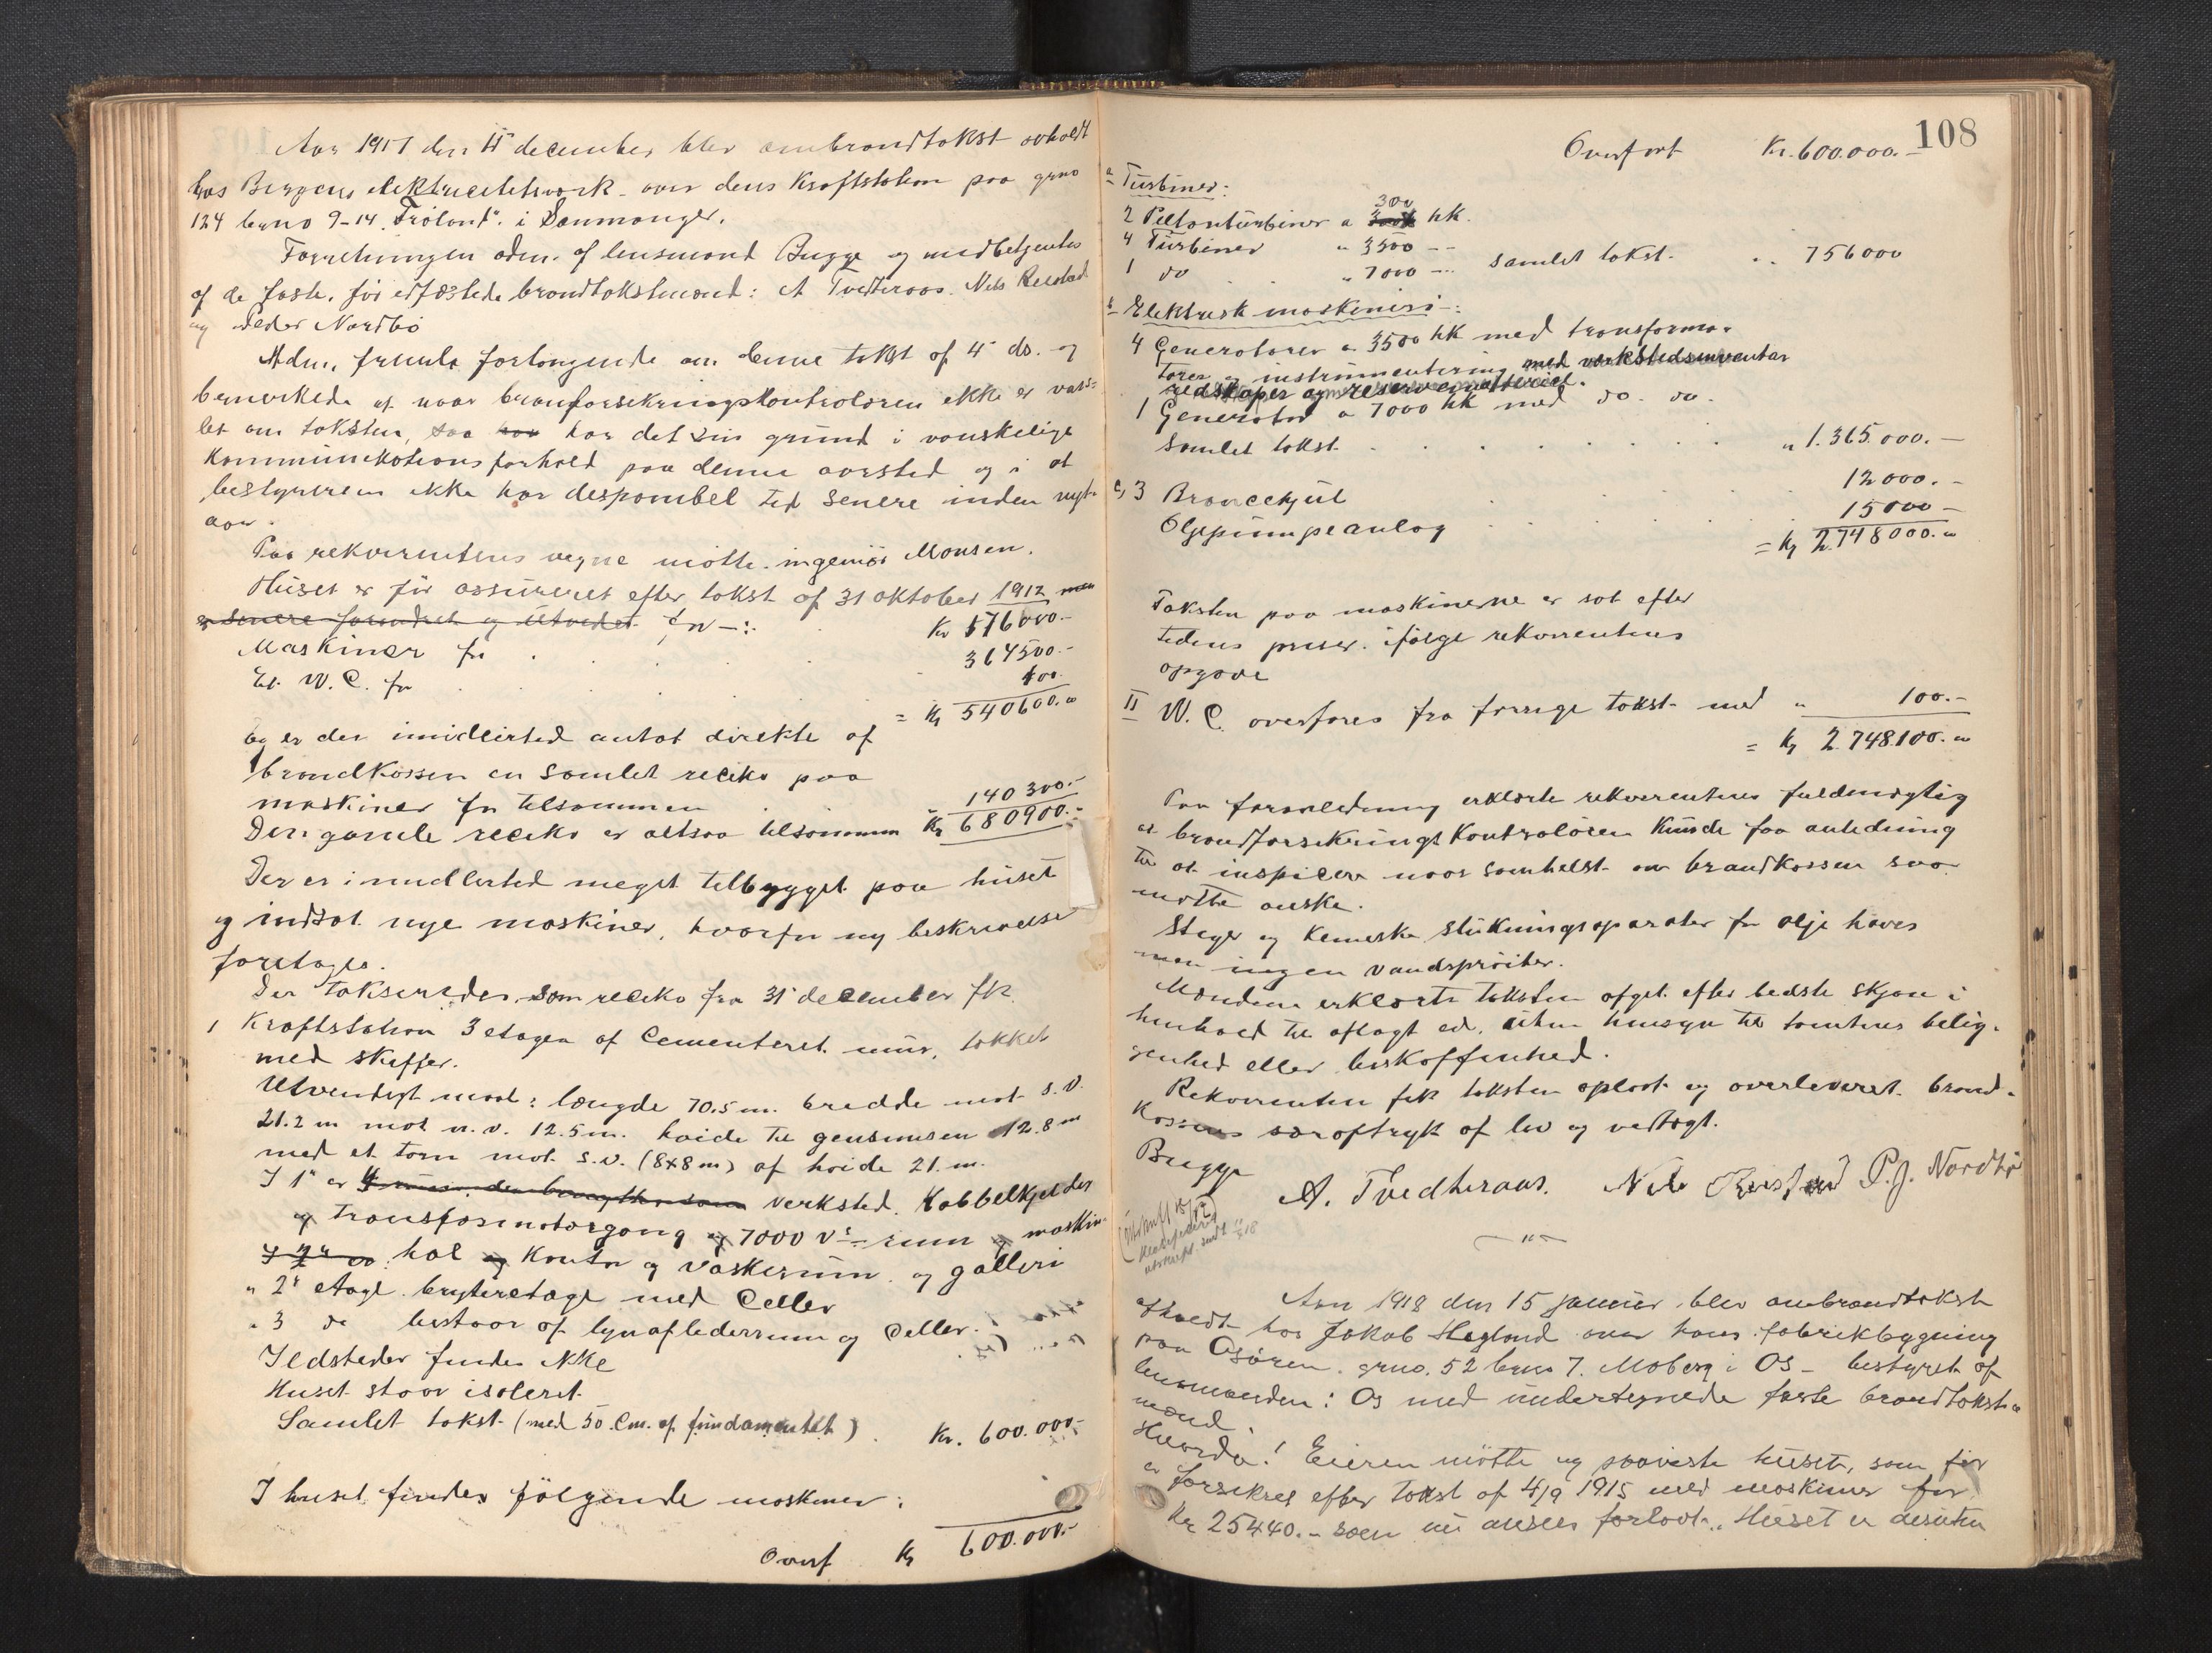 Aar 1917 den 11' december blev ombrandtakst avholdt
hos Bergens elektricitetsverk over dens Kraftstation paa grno
124 brno 9-14 "Frøland" i Samnanger.
Forretningen adm. af lensmand Bugge og medbetjentes
af de faste, før edfæstede brandtakstmænd: A Tvedteraas. Nils
og Peder Nordbø
Adm. fremla forlangende om denne takst af 4' ds. og
bemerkede at naar brandforsikringskontroløren ikke er vars-
let om taksten, saa har det sin grund i vanskelige
Kommunikationsforhold paa denne aarstid og i at
bestyreren ikke har disponibel tid senere inden nyt-
aar.
Paa rekvirentens vegne møtte ingeniør Monsen.
Huset er før assureret efter takst af 31 oktober 1912 men
er senere forandret og utvidet for -: Kr 176000.-
Maskiner for . . . . 364500.-
Et W.C. for . . . . 100.
= Kr 540600.
og er der imidlertid antat direkte af
brandkassen en samlet reciko paa
maskiner for tilsammen . . 140 300.-
Den gamle reciko er altsaa tilsammen Kr 680900.-
Der er imidlertid meget tilbygget paa huset
og indsat nye maskiner, hvorfor ny beskrivelse
foretages.
Der takseredes som reciko fra 31' december fk.
1 Kraftstation 3 etager af Cementeret mur, takket
med skiffer.
Utvendigt maal: længde 70.5 m. bredde mot s.v.
21.2 m mot n.v. 12.5 m. høide til gensimsen 12.8 m
med et tårn mot s.v. (8x8 m) af høide 21. m.
I 1' er verksted. Kabbelkjelder
og transformatorgang og 7000 V's rum og maskin-
hal og Kontor og vaskerum og galleri
" 2' etage bryteretage med Celler
" 3 do bestaar af lynaflederrum og Celler.
Ildsteder findes ikke
Huset staar isoleret
Samlet takst (med 50 Cm. af fundamentet) . Kr. 600.000.-
I huset findes følgende maskiner:
600.000.-
Overf Kr
108
Overført Kr. 600.000.-
a Turbiner:
300
2 Peltonturbiner a hk.
4 Turbiner " 3500 --
1 do " 7000 -- samlet takst. " 756000
b Elektrisk maskineri -:
4 Generatorer a 3500 hk med transforma-
torer og instrumentering med verkstedsinventar
redskaper og reservemateriel.
1 Generator a 7000 hk med do. do.
Samlet takst. . . . . " 1.365.000.-
c, 3 Broncehjul . . . 12000.-
Oljepumpeanlæg . . . 15000-
= Kr 2.748000.
Taksten paa maskinerne er sat efter
tidens priser ifølge rekvirentens
opgave
II W.C. overføres fra forrige takst med " 100.-
= Kr 2.748.100.
Paa foranledning erklærte rekvirentens fuldmægtig
at brandforsikringskontroløren kunde faa anledning
til at inspicere naar somhelst om brandkassen saa
måtte ønske.
Stiger og kemiske slukningsaparater for olje haves
men ingen vandsprøiter.
Mændene erklærte taksten afget efter bedste skjøn i
henhold til aflagt ed, uten hensyn til tomtens belig-
genhed eller beskaffenhed.
Rekvirenten fik taksten oplæst og overleveret brand-
kassens særoftryk af lov og vedtægt.
Bugge
A. Tvedteraas. Nils P. J. Nordbø
Aar 1918 den 15 januar blev ombrandtakst
afholdt hos Jakob Hegland over hans fabrikbygning
paa Osøren grno. 52 brno 7. Moberg i Os - bestyret af
lensmanden i Os med undertegnede faste brandtakst-
mænd.
Hvorda! Eieren møtte og paaviste huset, som før
er forsikret efter takst af 4/9 1915 med maskiner for
Kr 25440.- som nu ansees forlavt. Huset er desuten